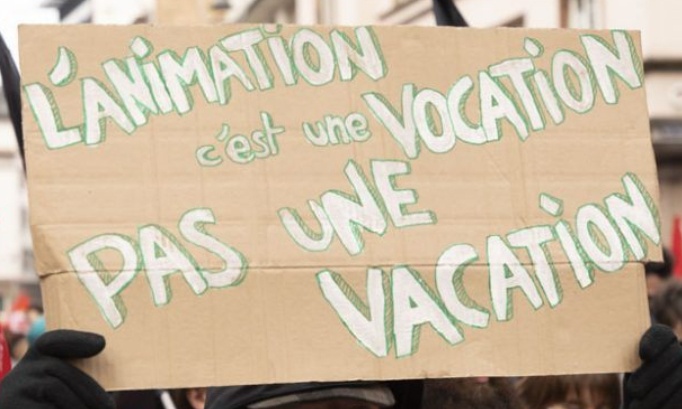 L'ANIMATION
c'est une VOCATION
PAS UNE
VACATION